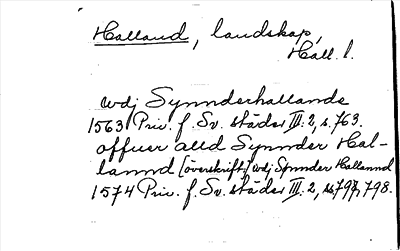 Halland, landskap,
Hall. l.
udj Synnderhallande
1563 Priv. f. Sv. städer III: 2, s. 763.
offuer alld Synnder Hal-
lannd [överskrift] udj Synnder Hallannd
1574 Priv. f. Sv. städer III: 2, ss. 797, 798.